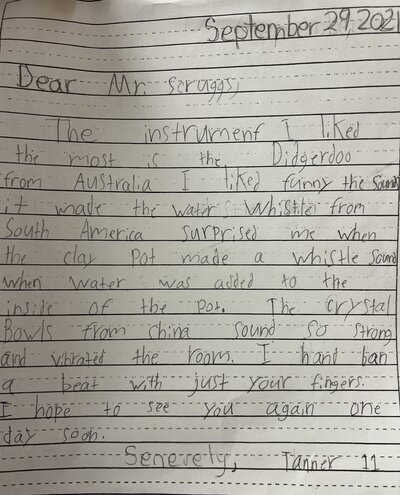 September 29, 2021
Dear Mr. Scraggs,
The instrument I liked
the most is the Didgerdoo
from Australia I liked funny the sound
it made the water Whistler from
South America surprised me when
the clay pot made a whistle sound
when water was added to the
inside of the pot. The crystal
Bowls from china sound so strong
and vibrated the room. I hand ban
a beat with just your fingers.
I hope to see you again one
day soon.
Senerely, Tanner 11